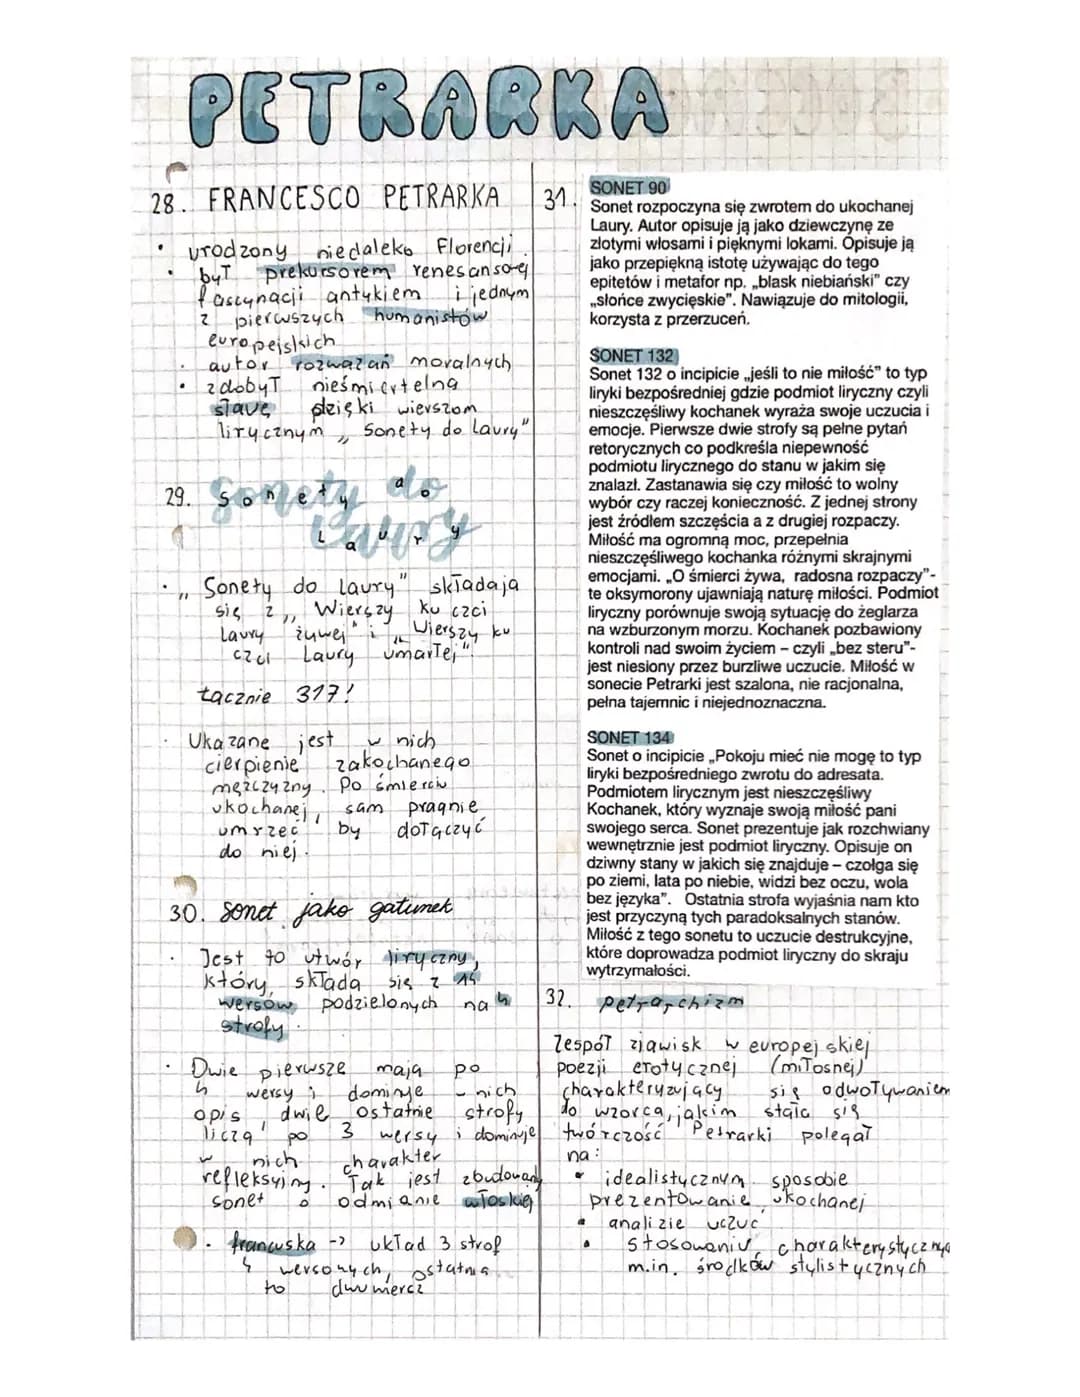 PETRARKA
28. FRANCESCO PETRARKA
• urodzony niedaleko Florencji
• był prekursorem renesansowej
fascynacji antykiem i jednym
z pierwszych humanistów
europejskich
• autor rozważań moralnych
• zdobył nieśmiertelną
sławę dzięki wierszom
lirycznym „Sonety do Laury"
29. Sonety do
Laury
• „Sonety do Laury" składają
się z „Wierszy ku czci
Laury żywej" i „Wierszy ku
czci Laury umarłej".
Łącznie 317!
• Ukazane jest w nich
cierpienie zakochanego
mężczyzny. Po śmierciu
ukochanej, sam pragnie
umrzeć by dołączyć
do niej.
30. Sonet jako gatunek
• Jest to utwór liryczny,
który, składa się z 14
wersów podzielonych na 4
strofy.
• Dwie pierwsze mają po
4 wersy i dominuje w nich
opis, dwie ostatnie strofy
liczą po 3 wersy i dominuje
w nich charakter
refleksyjny. Tak jest zbudowany
sonet o odmianie włoskiej
• francuska -> układ 3 strof
4 wersowych, ostatnia
to dwuwiersz
31. SONET 90
Sonet rozpoczyna się zwrotem do ukochanej
Laury. Autor opisuje ją jako dziewczynę ze
złotymi włosami i pięknymi lokami. Opisuje ją
jako przepiękną istotę używając do tego
epitetów i metafor np. „blask niebiański" czy
„słońce zwycięskie". Nawiązuje do mitologii,
korzysta z przerzuceń.
SONET 132
Sonet 132 o incipicie „jeśli to nie miłość" to typ
liryki bezpośredniej gdzie podmiot liryczny czyli
nieszczęśliwy kochanek wyraża swoje uczucia i
emocje. Pierwsze dwie strofy są pełne pytań
retorycznych co podkreśla niepewność
podmiotu lirycznego do stanu w jakim się
znalazł. Zastanawia się czy miłość to wolny
wybór czy raczej konieczność. Z jednej strony
jest źródłem szczęścia a z drugiej rozpaczy.
Miłość ma ogromną moc, przepełnia
nieszczęśliwego kochanka różnymi skrajnymi
emocjami. „O śmierci żywa, radosna rozpaczy"-
te oksymorony ujawniają naturę miłości. Podmiot
liryczny porównuje swoją sytuację do żeglarza
na wzburzonym morzu. Kochanek pozbawiony
kontroli nad swoim życiem – czyli „bez steru"-
jest niesiony przez burzliwe uczucie. Miłość w
sonecie Petrarki jest szalona, nie racjonalna,
pełna tajemnic i niejednoznaczna.
SONET 134
Sonet o incipicie „Pokoju mieć nie mogę to typ
liryki bezpośredniego zwrotu do adresata.
Podmiotem lirycznym jest nieszczęśliwy
Kochanek, który wyznaje swoją miłość pani
swojego serca. Sonet prezentuje jak rozchwiany
wewnętrznie jest podmiot liryczny. Opisuje on
dziwny stany w jakich się znajduje – czołga się
po ziemi, lata po niebie, widzi bez oczu, woła
bez języka". Ostatnia strofa wyjaśnia nam kto
jest przyczyną tych paradoksalnych stanów.
Miłość z tego sonetu to uczucie destrukcyjne,
które doprowadza podmiot liryczny do skraju
wytrzymałości.
32. petrarchizm
Zespół zjawisk w europejskiej
poezji erotycznej (miłosnej)
charakteryzujący się odwoływaniem
do wzorca, jakim stała się
twórczość Petrarki polegał
na:
• idealistycznym sposobie
prezentowanie ukochanej
• analizie uczuć
• stosowaniu charakterystycznyc
m.in. środków stylistycznych